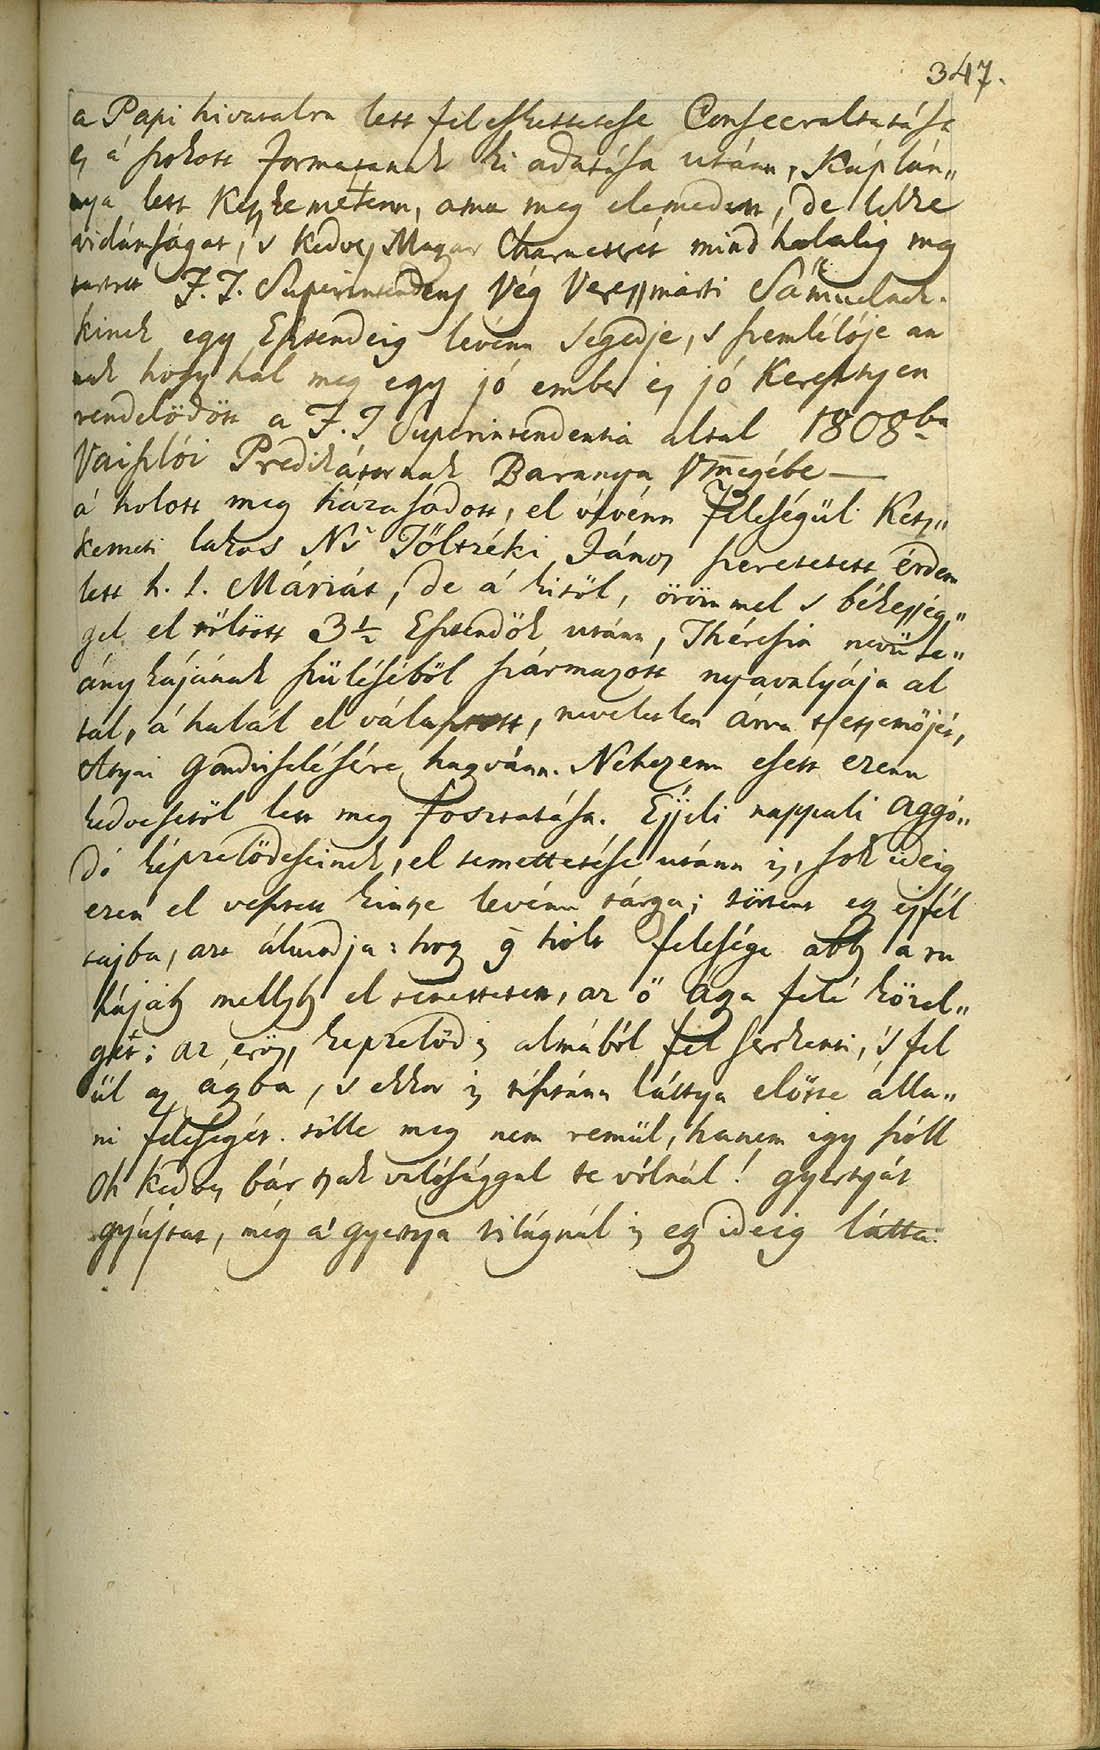 347.
a Papi hivatalra lett feleskettetése Consecraltatása
és á szokott formatanak ki adatása utánn, Káplán„
nya lett Ketskemétenn, ama meg elemedett, de lelke
vidámságat, 's kedves Magyar Characterét mind halalig meg
tartott F. T. Superintendens Vég Veressmarti Sámuelnek.
kinek egy Esztendeig lévénn Segedje, s szemlélője an
nak hogy hal meg egy jó ember és jó Keresztyen
rendelődött a F. T Superintendentia altal 1808ba
Vaiszlói Predikátornak Baranya Vmegébe —
á holott meg házasodott, el vévénn Feleségül Kets„
kemeti lakos Ns Töltzéki János szeretetett érdem
lett h. l. Máriát, de á kitöl, örömmel s békesség„
gel el töltött 3½ Esztendök utánn, Thérésia nevü le„
ányka­jának szüléséböl származott nyavalyája al
tal, á halál el válaszott, neveletlen árva tsetsemöjét,
Atyai Gondviselésére hagyánn. Nehezenn esett ezenn
kedvessetöl lett meg fosztatása. Éjjeli nappali aggó„
dó képzelödeseinek, el temettetése utánn is, sok ideig
ezen el vesztett kintse levénn tárgya; történt egy éjfél
tajba, azt álmodja: hogy g hólt felesége abb a ru
hájáb mellyb el temettetett, az ö ágya felé közel„
get; az erös, kepzelöd's almából fel serkenti, 's fel
ül az ágyba, s ekkor is tisztánn láttya elötte álla„
ni feleségét. tölle meg nem remül, hanem igy szóll
Oh kedves bár tsak valósággal te vólnál! gyertyát
gyújtat, még á gyertya világnál is egy ideig látta.